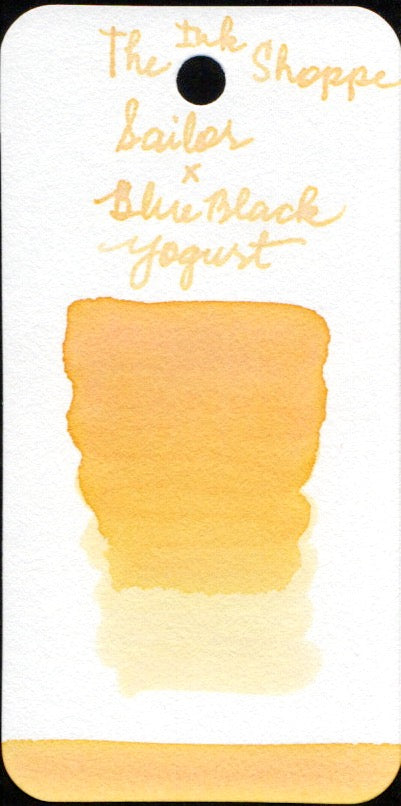 The Ink Shoppe
Sailor
x
Blue Black
Yogust